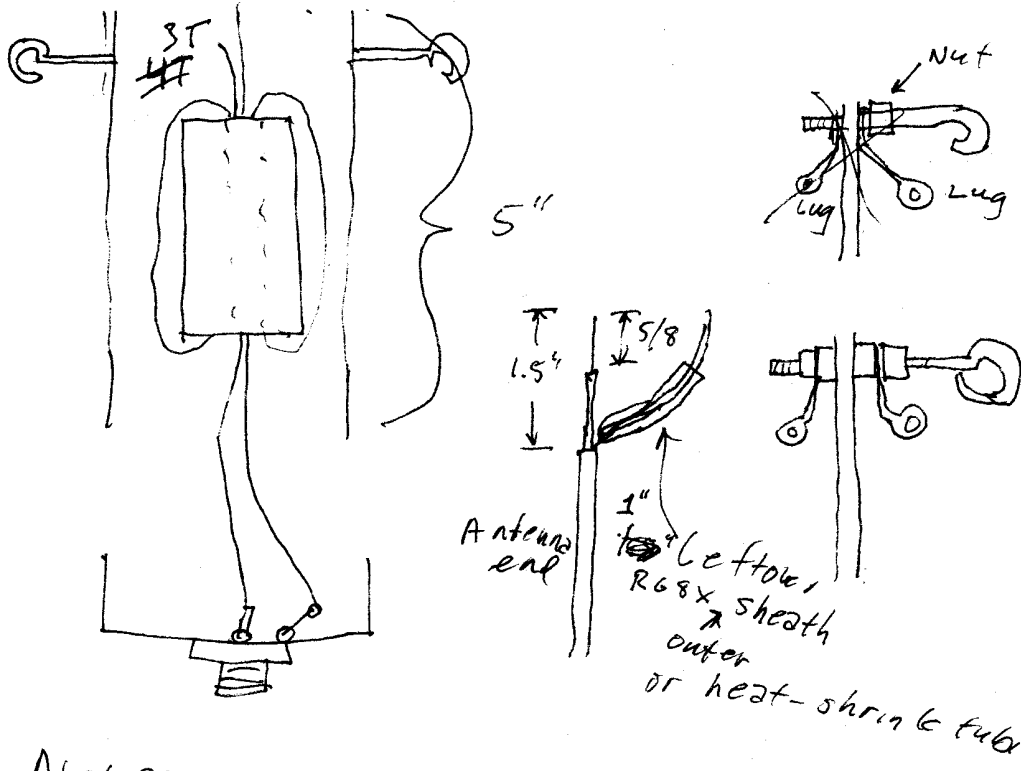 3T
4T
5"
Nut
Lug
Lug
5/8
1.5"
Antenna
end
1"
Leftover
RG8x sheath
outer
or heat-shrink tube